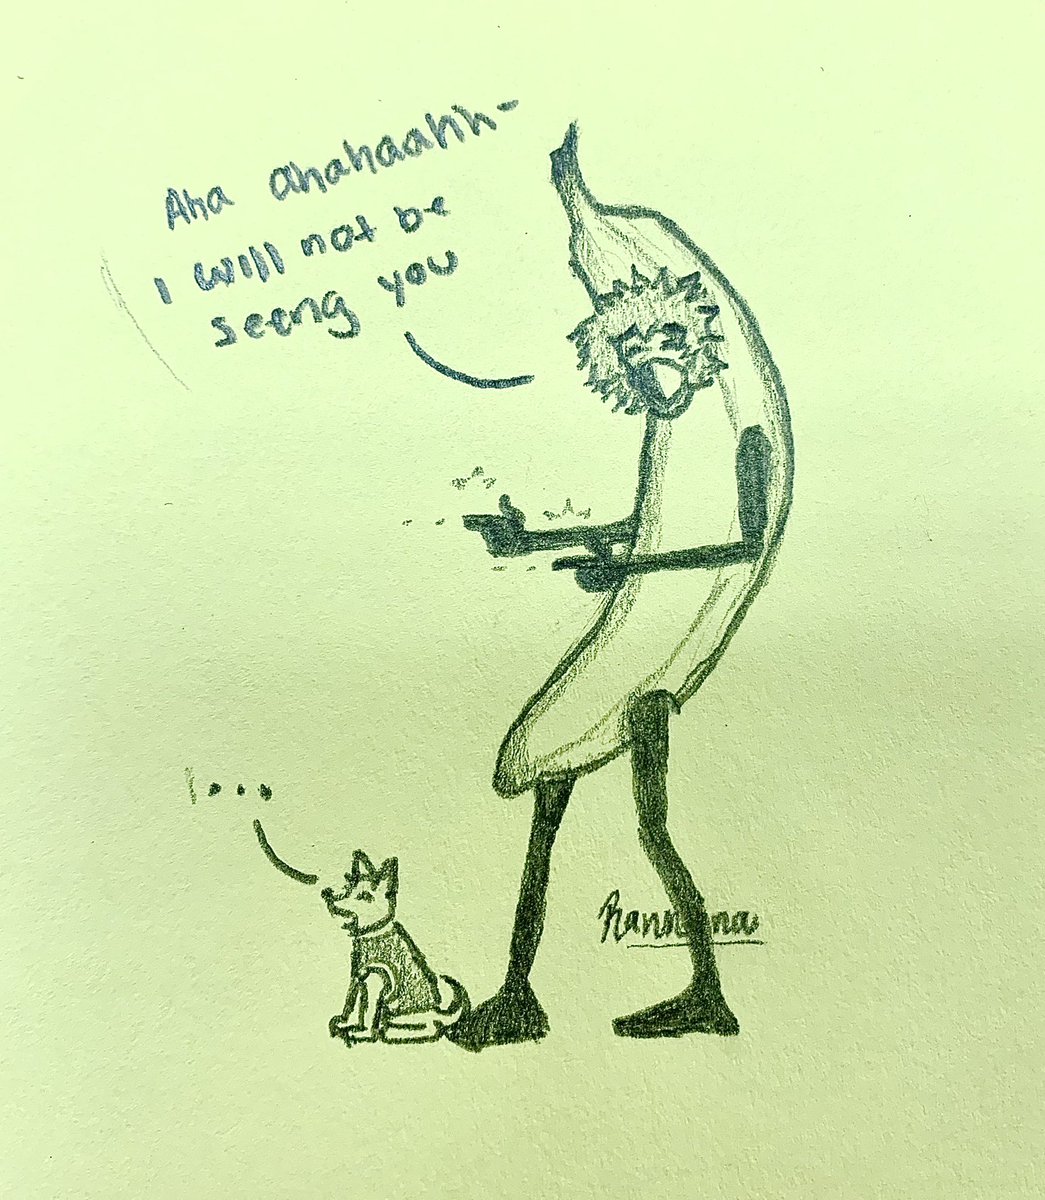 Aha ahahaahh-
I will not be
seeing you
I...